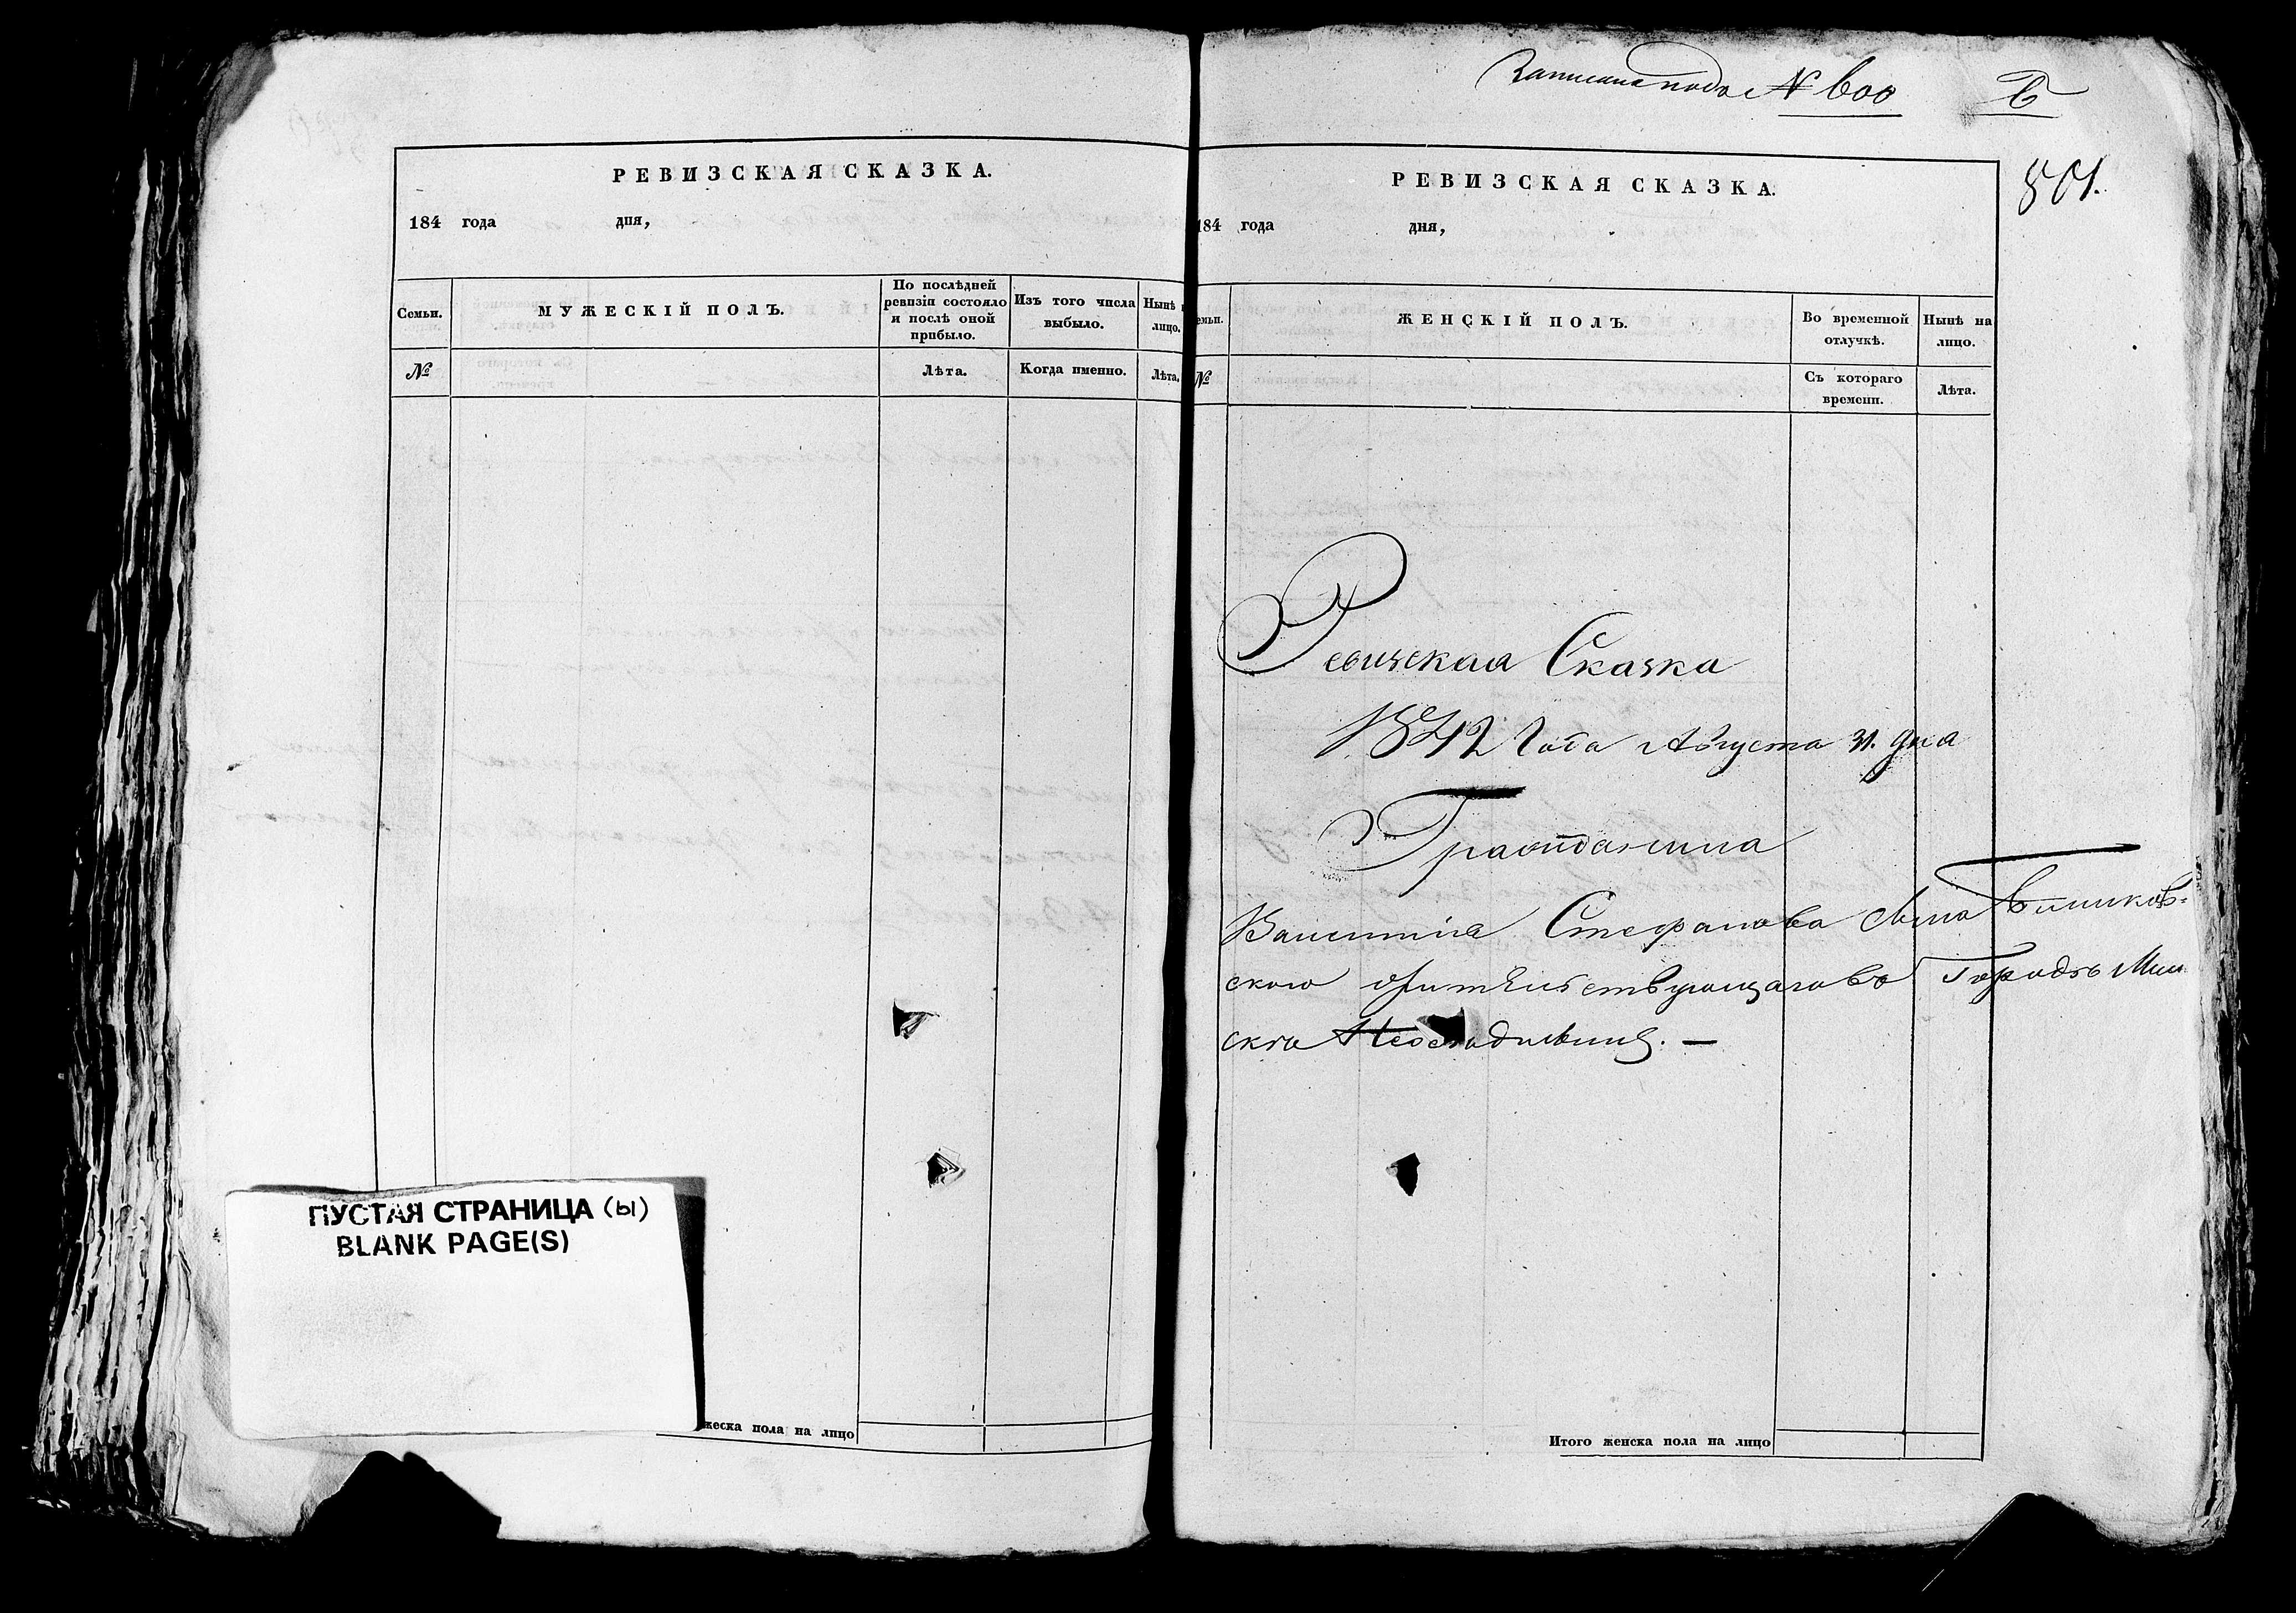 РЕВИЗСКАЯ СКАЗКА.
184 года дня,
Семьи. МУЖЕСКІЙ ПОЛЪ. По послѣдней ревизіи состояло и послѣ оной прибыло. Изъ того числа выбыло. Нынѣ лицо.
№ Лѣта. Когда именно. Лѣта.
ПУСТАЯ СТРАНИЦА (Ы)
BLANK PAGE(S)
жеска пола на лицо
Записана подъ № 600
801.
РЕВИЗСКАЯ СКАЗКА.
184 года дня,
емьи. ЖЕНСКІЙ ПОЛЪ. Во временной отлучкѣ. Нынѣ на лицо.
№ Съ котораго времени. Лѣта.
Ревизская Сказка
1842 Года Августа 31. дня
Гражданина
Стефанова Сына
ского жительствующаго въ Городѣ Мин
скѣ
Итого женска пола на лицо